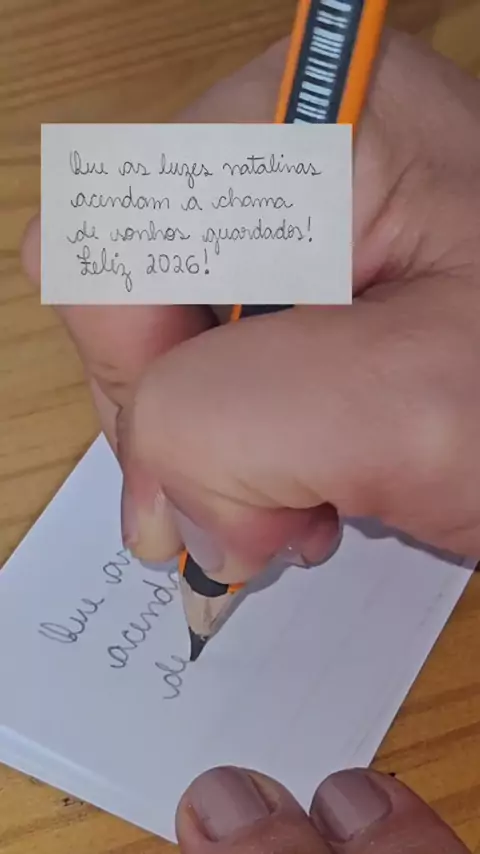 Que as luzes natalinas
acendam a chama
de sonhos guardados!
Feliz 2026!
Que as
acenda
de